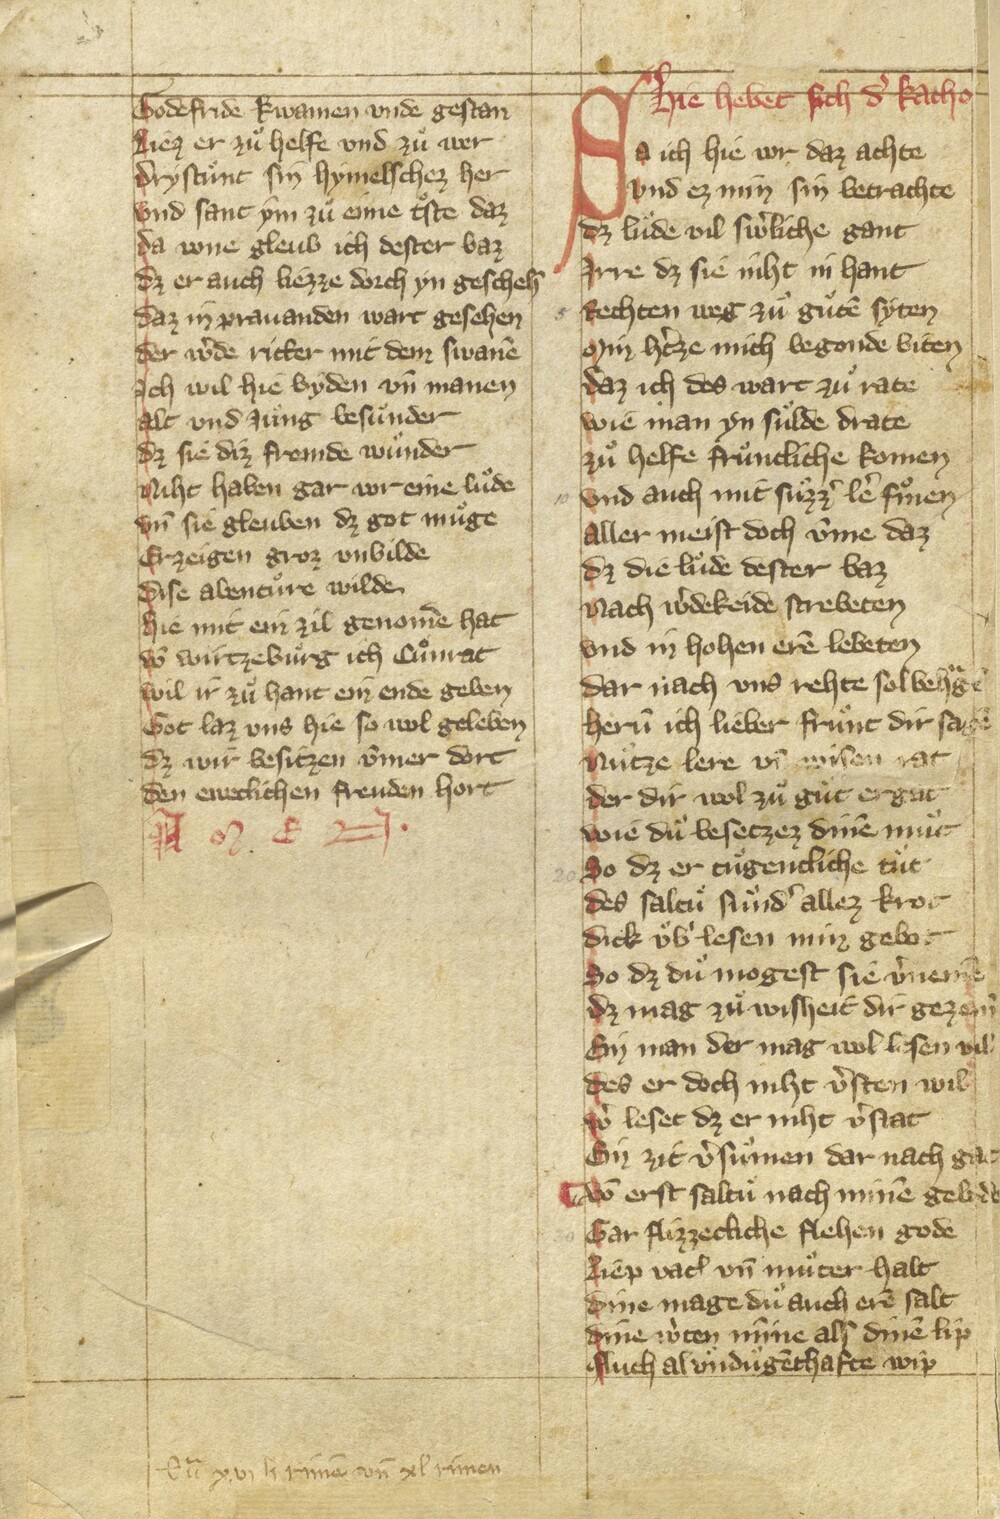 Godefride kwamen vnde gestan
Liez er zuͦ helfe vnd zuͦ wer
Drystuͦnt sin hymelschez her
Vnd sant ym zuͦ eime tr̄ste daz
Da vone gleub ich dester baz
Dz er auch liezze dorch yn gescheh̄
Daz in prauanden wart gesehen
Der w̾de ritter mit dem swanē
Ich wil hie byden vn̄ manen
Alt vnd Juͦng besuͦnder
Dz sie diz fremde wuͦnder
Niht haben gar vor eine luͦde
Vn̄ sie gleuben dz got muͦge
Erzeigen groz vnbilde
Dise abentuͦre wilde
Hie mit ein zil genom̄e hat
Vō wirtzebuͦrg ich Cuͦnrat
Wil ir zuͦ hant ein ende geben
Got laz vns hie so wol geleben
Dz wir besitzen ȳmer dort
Den eweclichen freuden hort
A M E N.
Hie hebet sich d̾ katho
DA ich hie vor daz achte
Vnd ez min sin betrachte
Dz luͦde vil sw̾liche gant
Irre dz sie niht in hant
5
Rechten weg zuͦ guͦtē syten
Min h̾tze mich begonde biten
Daz ich des wart zuͦ rate
Wie man yn suͦlde drate
Zuͦ helfe fruͦntliche komen
10
Vnd auch mit suͦzz̾ le̾ fromen
Aller meist doch vm̄e daz
Dz die luͦde dester baz
Nach w̾dekeide strebeten
Vnd in hohen erē lebeten
Dar nach vns rehte sol behagē
Heru̅ ich lieber fruͦnt dir sagē
Nuͦtze lere vn̄ wisen rat
Der dir wol zuͦ guͦt ergat
Wie duͦ besetzez dinē muͦt
20
So dz er tuͦgentliche tuͦt
Des saltuͦ suͦnd̾ allez krot
Dick vͦb̾ lesen min gebot
So dz duͦ mogest sie v̾nemē
Dz mag zuͦ wisheit dir gezem̄
Ein man der mag wol lesen vil
Des er doch niht v̾sten wil
W̾ leset dz er niht v̾stat
Ein zit v̾suͦmen dar nach gat
Vō erst saltuͦ nach minē gebode
30
Gar flizzecliche flehen gode
Liep vat̾ vn̄ muͦter halt
Dine mage duͦ auch erē salt
Dine w̾ten mīne als dinē lip
Fluch al vnduͦgēthafte wip
rimen vn̄ xl rimen